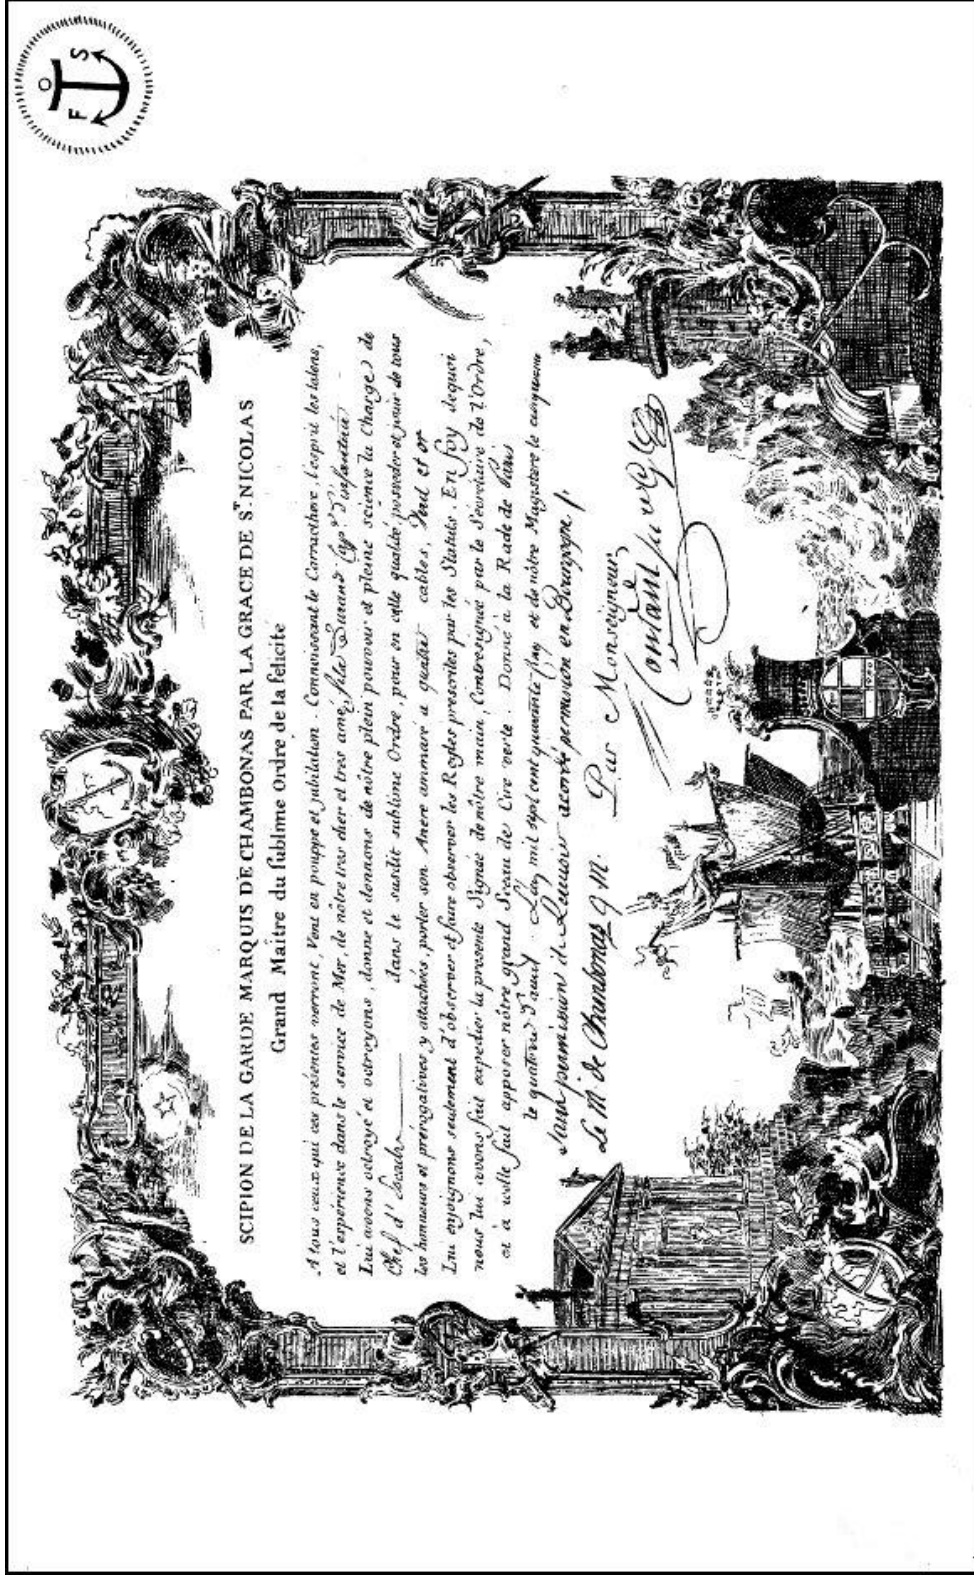 F S
SCIPION DE LA GARDE MARQUIS DE CHAMBONAS PAR LA GRACE DE S.T NICOLAS
Grand Maitre du sublime Ordre de la felicité
A tous ceux qui ces présentes verront, Vent en pouppe et jubilation. Connoissant le Carracthere, l'esprit les talens,
et l'espérience dans le service de Mer, de nôtre tres cher et tres amé filz Durand Cap.e d'infanterie
Lui avons octroyé et octroyons, donné et donnons de nôtre plein pouvoir et pleine science la Charge de
Chef d'Escadre dans le susdit sublime Ordre, pour en cette qualité posseder et jouir de tous
les honneurs et prérogatives y attachées, porter son Ancre ammaré a quatre cables, Verd et or
Lui enjoignons seulement d'observer et faire observer les Regles prescrites par les Statuts. En foy dequoi
nous lui avons fait expedier la presente Signée de nôtre main, Contresignée par le Sécrétaire de l'Ordre,
et à icelle fait apposer nôtre grand Sceau de Cire verte. Donné à la Rade de Paris
le quatorze d'aoust L'an mil sept cent quarante-cinq et de nôtre Magistere le cinquieme
sauf permission de acorté permission en Bourgogne /.
Le M. de Chambonas G M. Par Monseigneur,